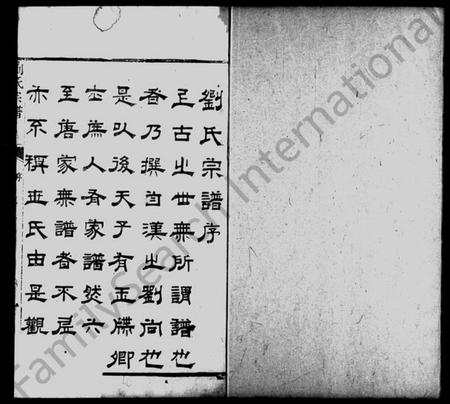 劉氏宗譜序
上古之世無所謂譜也
乃撰自漢之劉向也
是以後天子有玉牒卿
士薦人有家譜然六
至唐家無譜者不
亦不稱世氏由是觀
劉氏宗譜
序
FamilySearch International